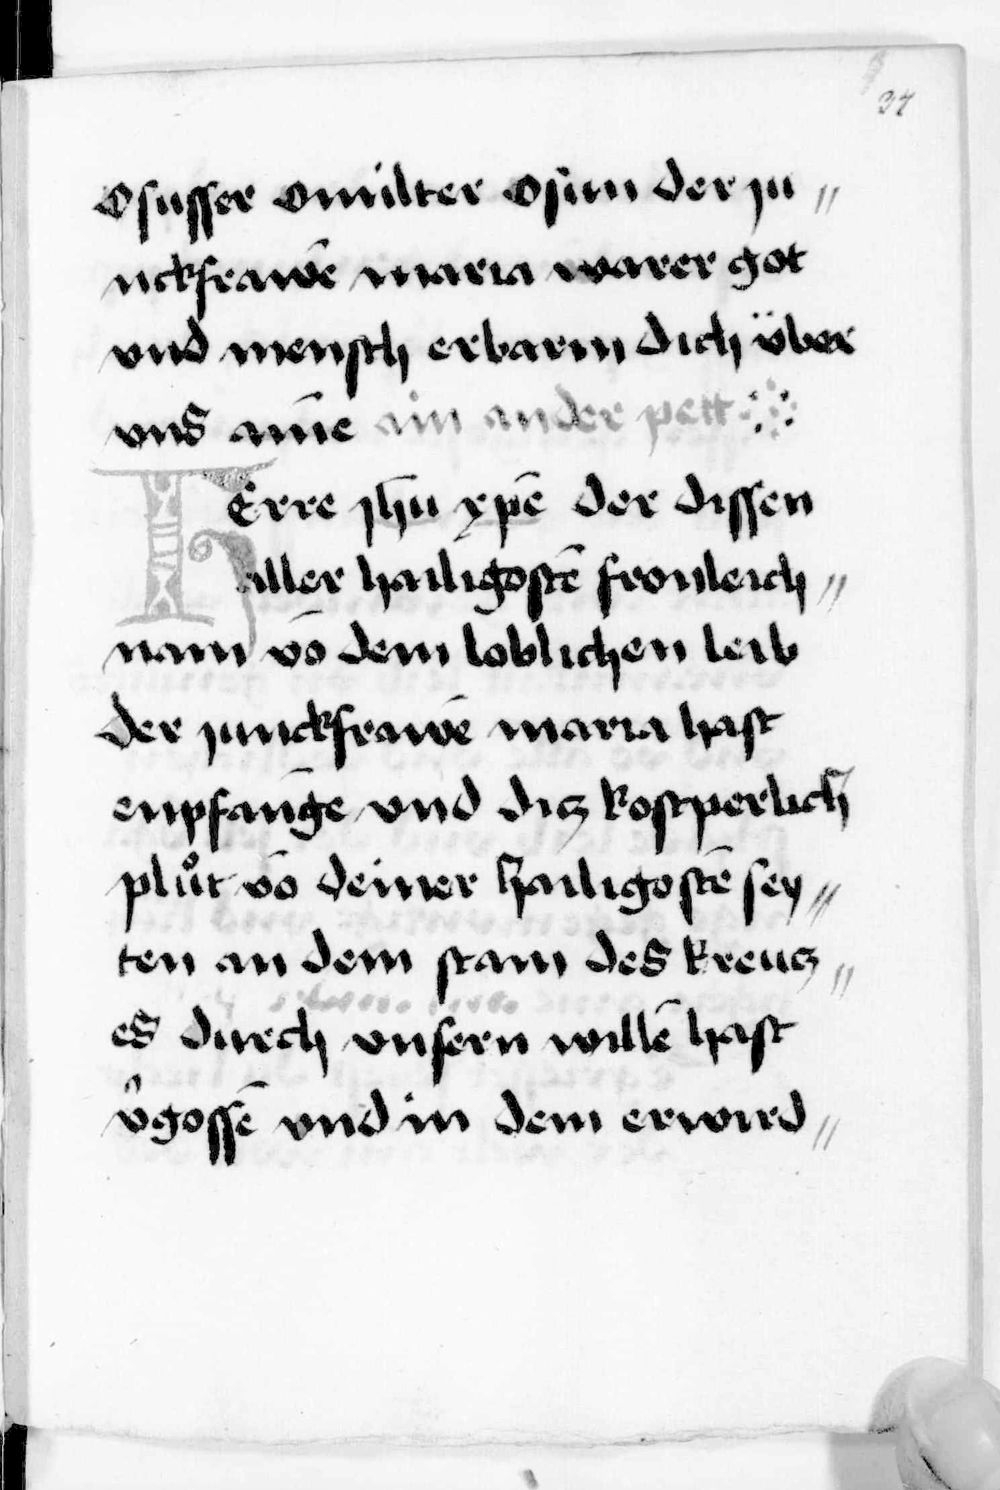 34
O susser O milter O sun der ju〃
nckfrawē maria warer got
vnd mensch erbarm dich über
vns amē ain ander pett
HErre jhū xpē der dissen
aller hailigostē fronleich〃
nam vō dem loblichen leib
der junckfrawē maria hast
enpfangē vnd ditz kostperlich
plůt vō deiner hailigostē sey〃
ten an dem stam des kreutz〃
es durch vnsern willē hast
v̓gossē vnd in dem erwird〃